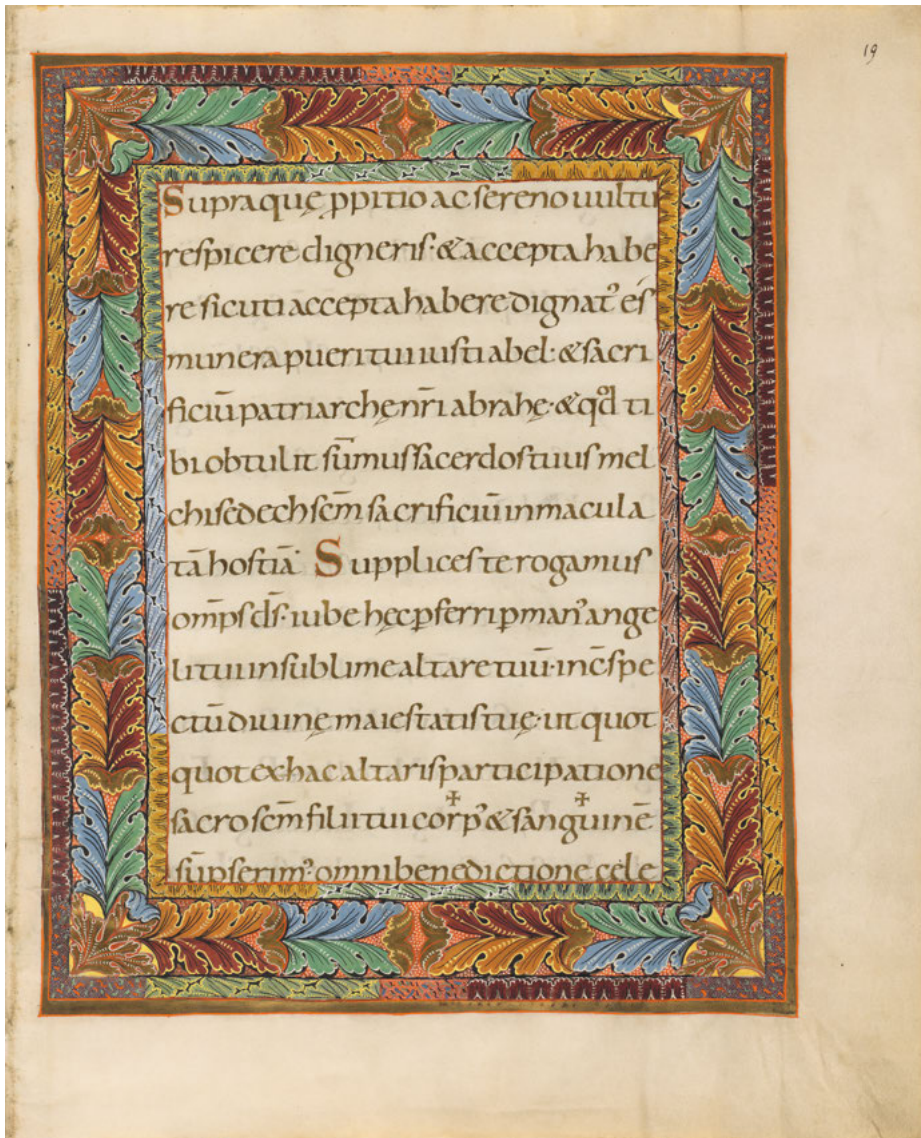 19
Supraquę ꝓpitio ac sereno uultu
respicere digneris· & accepta habe
re sicuti accepta habere dignatꝰ és
munera pueri tui iusti abel· & sacri
ficiū patriarchę nr̄i abrahę· & qͦd ti
bi obtulit sūmus sacerdos tuus mel
chisedech sc̄m sacrificiū inmacula
tā hostiā· Supplices te rogamus
om̄ps ds̄· iube hęc ꝑferri ꝑ manꝰ ange
li tui in sublime altare tuū· in c̄spe
ctū diuinę maiestatis tuę· ut quot
quot ex hac altaris participatione
sacro sc̄m filii tui cor✝pꝰ & sangu✝inē
sūpserimꝰ· omni benedictione cęle